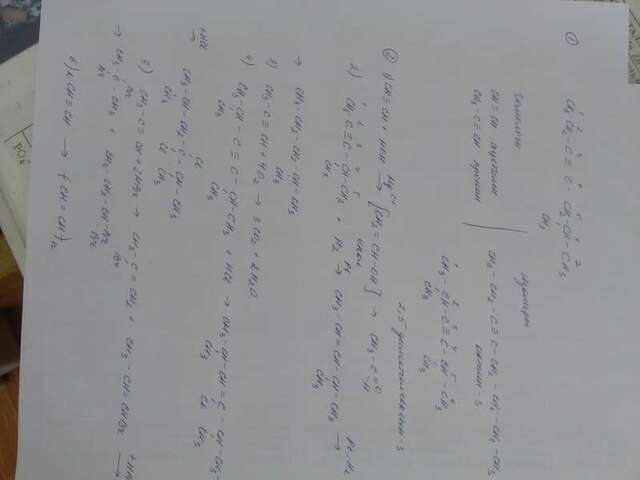 ①
CH₃CH₂-C≡C-CH₂CH-CH₃
1 2 3 4 5 6 7
CH₃
гомологи
изомеры
CH≡CH ацетилен
CH₃-C≡CH пропин
CH₃-CH₂-C≡C-CH₂-CH₂-CH₂-CH₃
октин-3
CH₃-CH-C≡C-CH-CH₃
1 2 3 4 5 6
CH₃ CH₃
2,5 диметилгексин-3
② 1) CH≡CH + HOH → [CH₂=CH-OH] → CH₃-C=O
Hg²⁺
енол
-H
2) CH₃-C≡C-CH-CH₃ + H₂ → CH₃-CH=CH-CH-CH₃ →
1 2 3 4 5
CH₃
CH₃
→ CH₃-CH₂-CH₂-CH-CH₃
CH₃
3) CH₃-C≡CH + 4O₂ → 3CO₂ + 2H₂O
4) CH₃-CH-C≡C-CH-CH₃ + HCl → CH₃-CH-CH=C-CH-CH₃
CH₃ CH₃
CH₃ Cl CH₃
+HCl
→ CH₃-CH-CH₂-C-CH-CH₃
Cl
CH₃ Cl CH₃
5) CH₃-C≡CH + 2HBr → CH₃-C=CH₂ + CH₃-CH=CHBr →
Br
→ CH₃-C-CH₃ + CH₃-CH₂-CH-Br
Br
Br
Br
6) n CH≡CH → (CH=CH)n